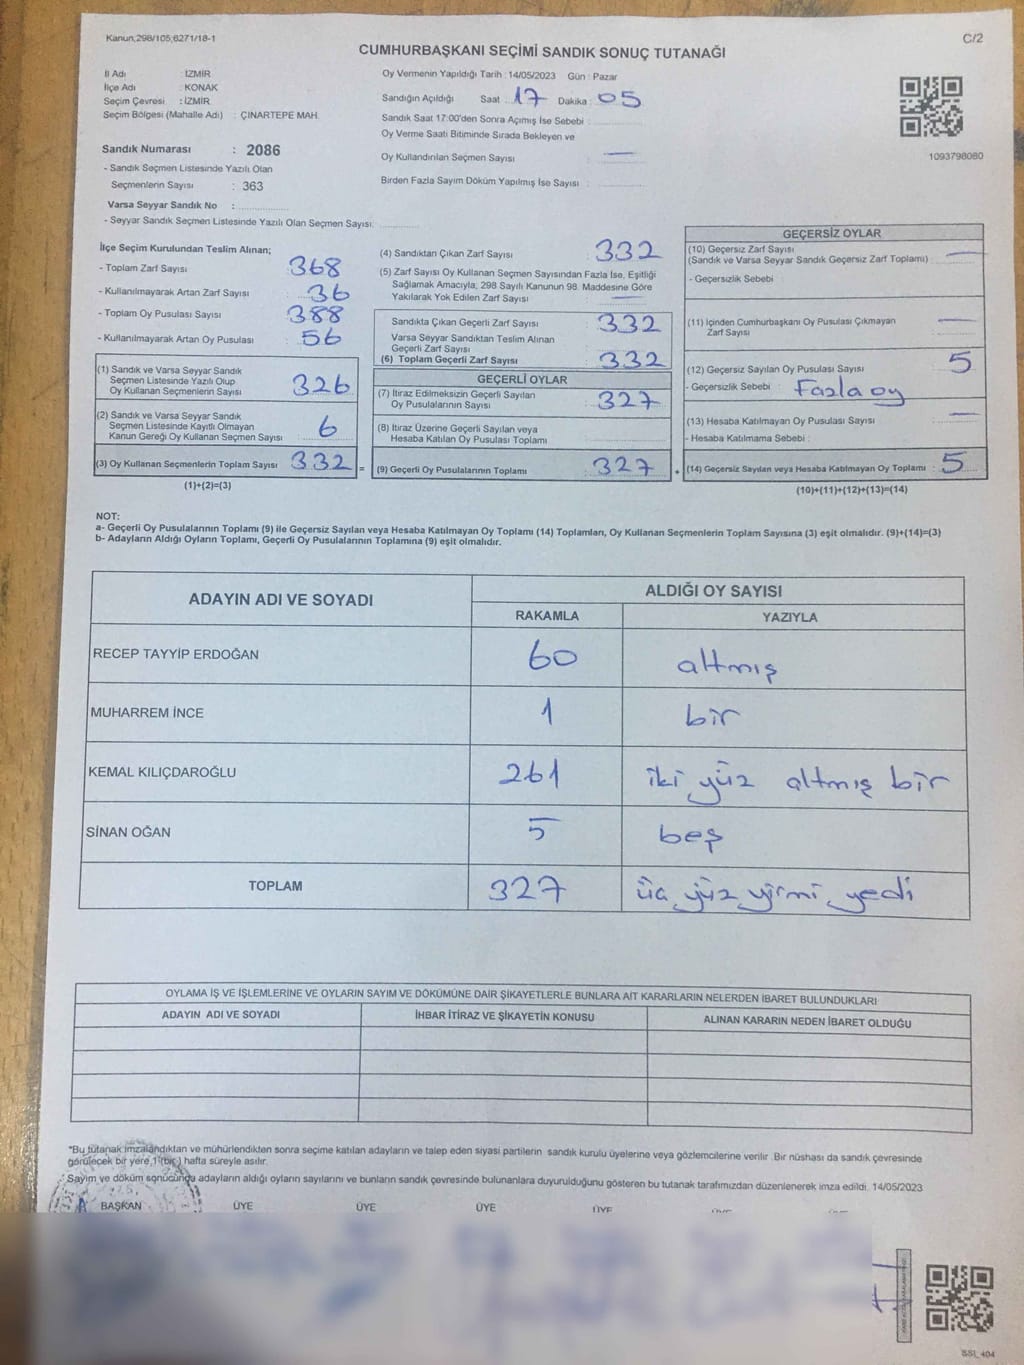 Kanun;298/105;6271/18-1
C/2
CUMHURBAŞKANI SEÇİMİ SANDIK SONUÇ TUTANAĞI
İl Adı : İZMİR
İlçe Adı : KONAK
Seçim Çevresi : İZMİR
Seçim Bölgesi (Mahalle Adı) : ÇINARTEPE MAH.
Oy Vermenin Yapıldığı Tarih : 14/05/2023 Gün : Pazar
Sandığın Açıldığı Saat : 17 Dakika : 05
Sandık Saat 17:00'den Sonra Açılmış İse Sebebi :
Oy Verme Saati Bitiminde Sırada Bekleyen ve
Oy Kullandırılan Seçmen Sayısı : —
Birden Fazla Sayım Döküm Yapılmış İse Sayısı :
1093798080
Sandık Numarası : 2086
- Sandık Seçmen Listesinde Yazılı Olan
Seçmenlerin Sayısı : 363
Varsa Seyyar Sandık No :
- Seyyar Sandık Seçmen Listesinde Yazılı Olan Seçmen Sayısı:
İlçe Seçim Kurulundan Teslim Alınan;
- Toplam Zarf Sayısı : 368
- Kullanılmayarak Artan Zarf Sayısı : 36
- Toplam Oy Pusulası Sayısı : 388
- Kullanılmayarak Artan Oy Pusulası : 56
(1) Sandık ve Varsa Seyyar Sandık
Seçmen Listesinde Yazılı Olup
Oy Kullanan Seçmenlerin Sayısı : 326
(2) Sandık ve Varsa Seyyar Sandık
Seçmen Listesinde Kayıtlı Olmayan
Kanun Gereği Oy Kullanan Seçmen Sayısı : 6
(3) Oy Kullanan Seçmenlerin Toplam Sayısı : 332 =
(1)+(2)=(3)
(4) Sandıktan Çıkan Zarf Sayısı : 332
(5) Zarf Sayısı Oy Kullanan Seçmen Sayısından Fazla İse, Eşitliği
Sağlamak Amacıyla, 298 Sayılı Kanunun 98. Maddesine Göre
Yakılarak Yok Edilen Zarf Sayısı : —
Sandıkta Çıkan Geçerli Zarf Sayısı : 332
Varsa Seyyar Sandıktan Teslim Alınan
Geçerli Zarf Sayısı
(6) Toplam Geçerli Zarf Sayısı : 332
GEÇERLİ OYLAR
(7) İtiraz Edilmeksizin Geçerli Sayılan
Oy Pusulalarının Sayısı : 327
(8) İtiraz Üzerine Geçerli Sayılan veya
Hesaba Katılan Oy Pusulası Toplamı
(9) Geçerli Oy Pusulalarının Toplamı : 327 +
GEÇERSİZ OYLAR
(10) Geçersiz Zarf Sayısı
(Sandık ve Varsa Seyyar Sandık Geçersiz Zarf Toplamı) : —
- Geçersizlik Sebebi :
(11) İçinden Cumhurbaşkanı Oy Pusulası Çıkmayan
Zarf Sayısı : —
(12) Geçersiz Sayılan Oy Pusulası Sayısı : 5
- Geçersizlik Sebebi : Fazla oy
(13) Hesaba Katılmayan Oy Pusulası Sayısı : —
- Hesaba Katılmama Sebebi :
(14) Geçersiz Sayılan veya Hesaba Katılmayan Oy Toplamı : 5
(10)+(11)+(12)+(13)=(14)
NOT:
a- Geçerli Oy Pusulalarının Toplamı (9) ile Geçersiz Sayılan veya Hesaba Katılmayan Oy Toplamı (14) Toplamları, Oy Kullanan Seçmenlerin Toplam Sayısına (3) eşit olmalıdır. (9)+(14)=(3)
b- Adayların Aldığı Oyların Toplamı, Geçerli Oy Pusulalarının Toplamına (9) eşit olmalıdır.
ADAYIN ADI VE SOYADI
ALDIĞI OY SAYISI
RAKAMLA YAZIYLA
RECEP TAYYİP ERDOĞAN 60 altmış
MUHARREM İNCE 1 bir
KEMAL KILIÇDAROĞLU 261 iki yüz altmış bir
SİNAN OĞAN 5 beş
TOPLAM 327 üç yüz yirmi yedi
OYLAMA İŞ VE İŞLEMLERİNE VE OYLARIN SAYIM VE DÖKÜMÜNE DAİR ŞİKAYETLERLE BUNLARA AİT KARARLARIN NELERDEN İBARET BULUNDUKLARI
ADAYIN ADI VE SOYADI İHBAR İTİRAZ VE ŞİKAYETİN KONUSU ALINAN KARARIN NEDEN İBARET OLDUĞU
*Bu tutanak imzalandıktan ve mühürlendikten sonra seçime katılan adayların ve talep eden siyasi partilerin sandık kurulu üyelerine veya gözlemcilerine verilir. Bir nüshası da sandık çevresinde
görülecek bir yere 1 (bir) hafta süreyle asılır.
Sayım ve döküm sonucunda adayların aldığı oyların sayılarını ve bunların sandık çevresinde bulunanlara duyurulduğunu gösteren bu tutanak tarafımızdan düzenlenerek imza edildi. 14/05/2023
BAŞKAN ÜYE ÜYE ÜYE ÜYE
SSI_404